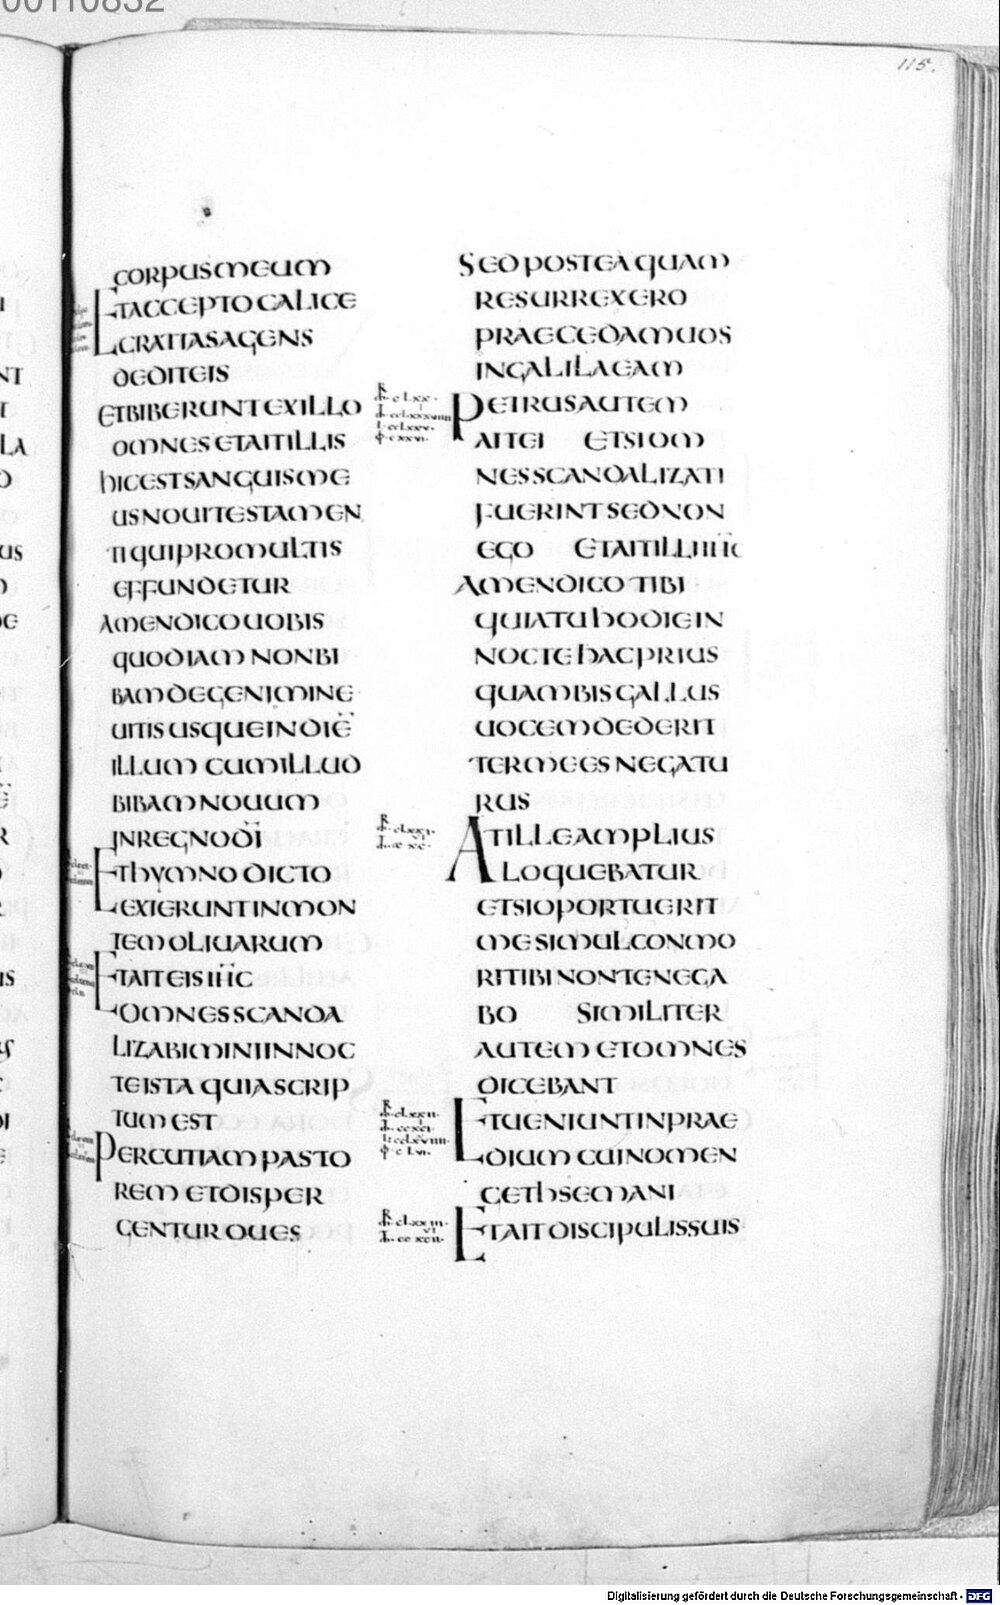 00110832
115.
CORPUSMEUM
ETACCEPTO CALICE
GRATIASAGENS
DEDITEIS
ETBIBERUNTEXILLO
OMNESETAITILLIS
HICESTSANGUISME
USNOUITESTAMEN
TIQUIPROMULTIS
EFFUNDETUR
AMENDICOUOBIS
QUODIAM NONBI
BAMDEGENIMINE
UITIS USQUEINDIE̅
ILLUM CUMILLUD
BIBAMNOUUM
INREGNODI̅
ETHYMNO DICTO
EXIERUNTINMON
TEMOLIUARUM
ETAITEISIH̅C
OMNESSCANDA
LIZABIMINIINNOC
TEISTA QUIASCRIP
TUMEST
PERCUTIAMPASTO
REM ETDISPER
GENTUR OUES
SEDPOSTEAQUAM
RESURREXERO
PRAECEDAMUOS
INGALILAEAM
PETRUSAUTEM
AITEI ETSIOM
NESSCANDALIZATI
FUERINTSEDNON
EGO ETAITILLIIH̅C
AMENDICO TIBI
QUIATUHODIEIN
NOCTEHACPRIUS
QUAMBISGALLUS
UOCEMDEDERIT
TERMEESNEGATU
RUS
ATILLEAMPLIUS
LOQUEBATUR
ETSIOPORTUERIT
MESIMULCONMO
RITIBINONTENEGA
BO SIMILITER
AUTEM ETOMNES
DICEBANT
ETUENIUNTINPRAE
DIUM CUINOMEN
GETHSEMANI
ETAITDISCIPULISSUIS
Digitalisierung gefördert durch die Deutsche Forschungsgemeinschaft - DFG